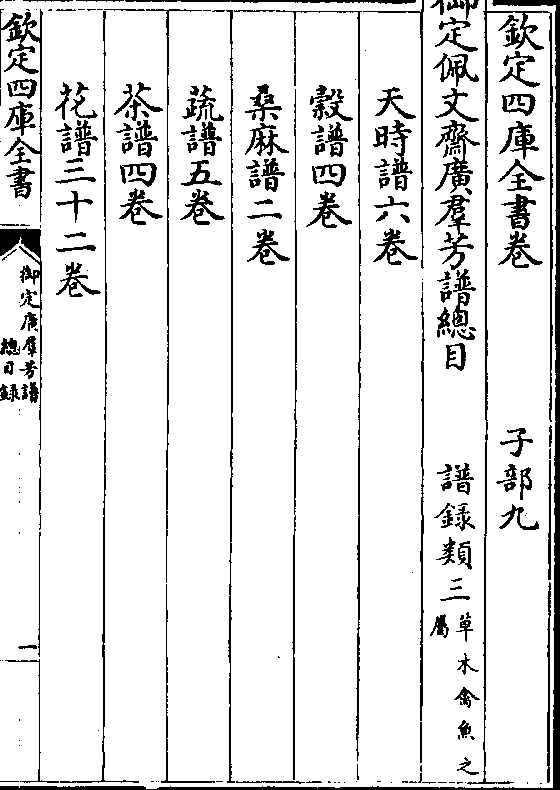 欽定四庫全書卷 子部九
御定佩文齋廣群芳譜總目 譜録類三草木禽魚之屬
天時譜六卷
穀譜四卷
桑麻譜二卷
蔬譜五卷
茶譜四卷
花譜三十二卷
欽定四庫全書
御定廣群芳譜
總目録
一